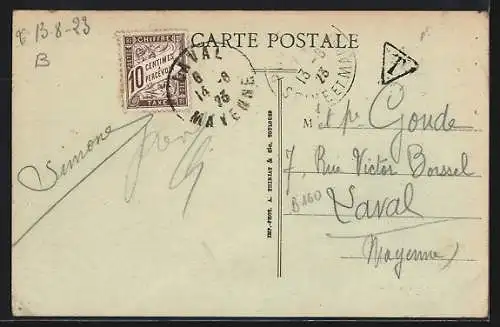 ₢ 13-8-23
B
CARTE POSTALE
CHIFFRE
10 CENTIMES
A PERCEVOIR
TAXE
LAVAL
6
14 -8
23
MAYENNE
13 -8
23
T
Goude
7, Rue Victor Boissel
Laval
Mayenne
Simone
B160
IMP.-PHOT. A. THIRIAT & Cie, TOULOUSE